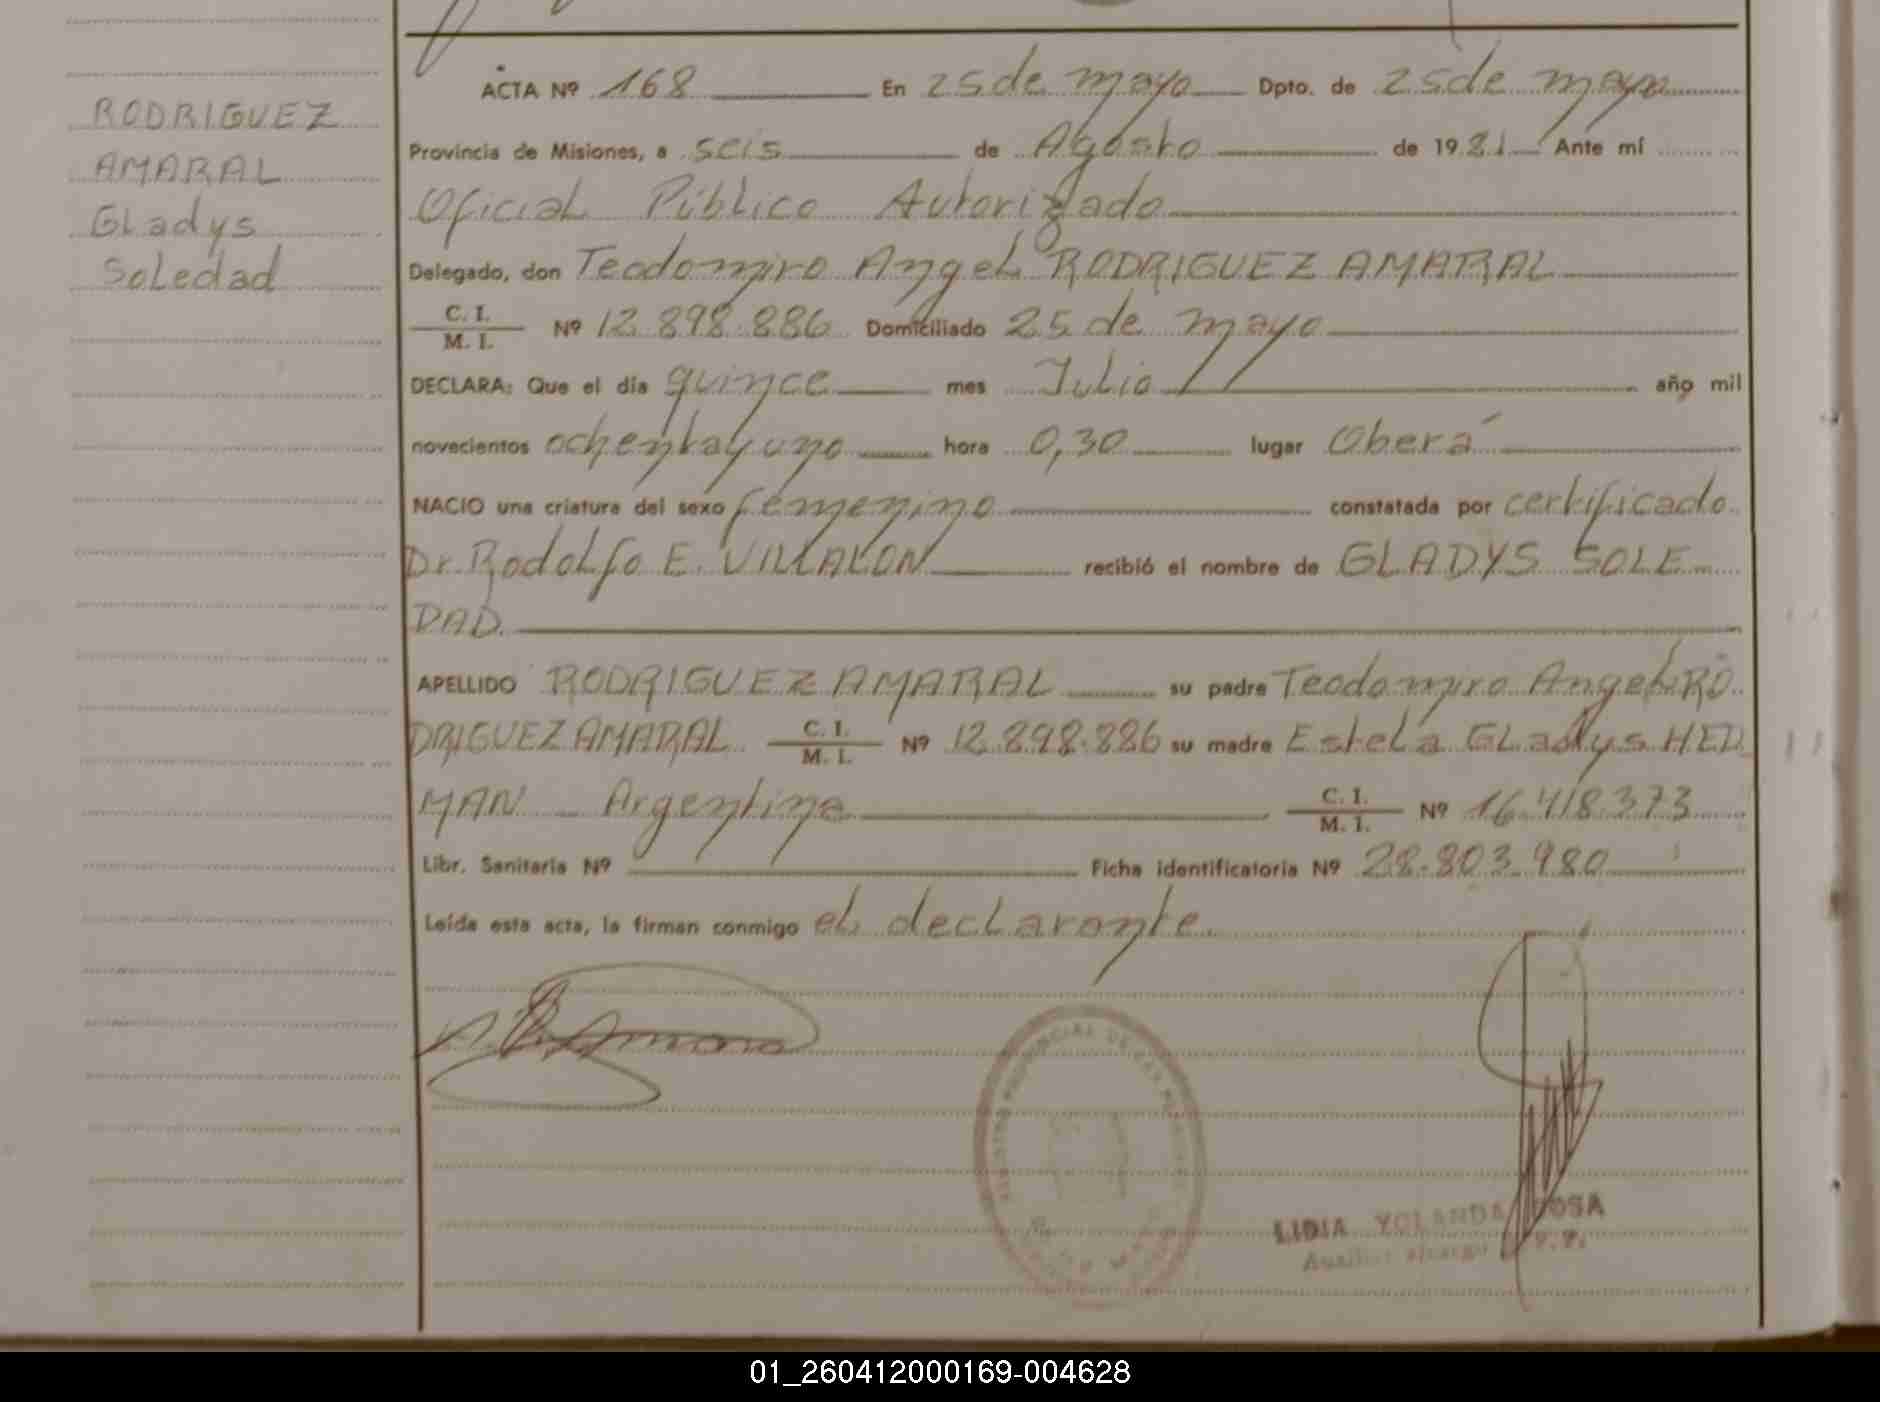 RODRIGUEZ
AMARAL
Gladys
Soledad
ACTA Nº 168 En 25 de mayo Dpto. de 25 de mayo
Provincia de Misiones, a seis de Agosto de 1981 Ante mí
Oficial Público Autorizado
Delegado, don Teodomiro Angel RODRIGUEZ AMARAL
C. I. / M. I. Nº 12.898.886 Domiciliado 25 de mayo
DECLARA: Que el día quince mes Julio año mil
novecientos ochenta y uno hora 0,30 lugar Oberá
NACIO una criatura del sexo femenino constatada por certificado
Dr. Rodolfo E. VILLALON recibió el nombre de GLADYS SOLE
DAD.
APELLIDO RODRIGUEZ AMARAL su padre Teodomiro Angel RO
DRIGUEZ AMARAL C. I. / M. I. Nº 12.898.886 su madre Estela Gladys HED
MAN Argentina C. I. / M. I. Nº 16.418.373
Libr. Sanitaria Nº Ficha identificatoria Nº 28.803.980
Leída esta acta, la firman conmigo el declarante.
LIDIA YOLANDA SOSA
01_260412000169-004628